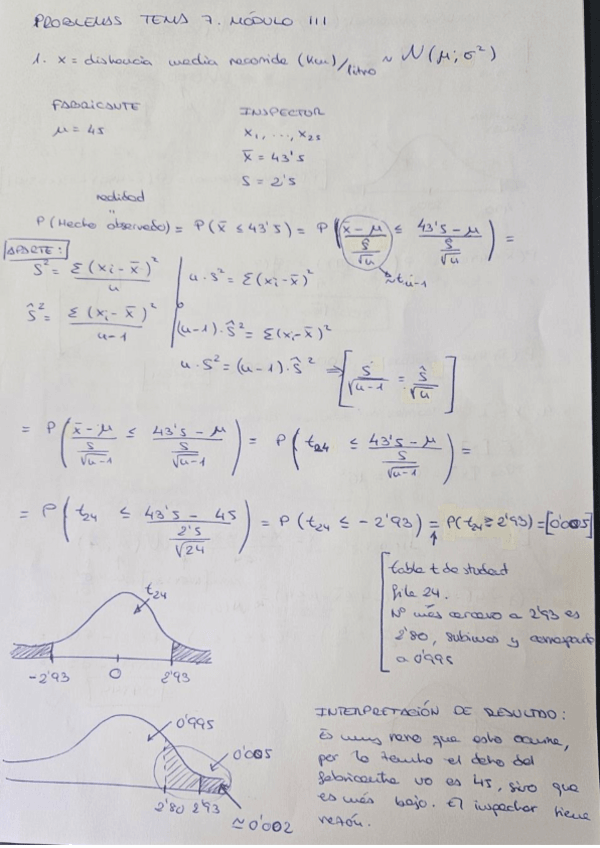 PROBLEMAS TEMA 7. MÓDULO III
1. x = distancia media recorrida (Km)/litro ≈ N(μ; σ²)
FABRICANTE
μ = 45
INSPECTOR
x₁, ..., x₂₅
x̄ = 43'5
S = 2'5
realidad
P(Hecho observado) = P(x̄ ≤ 43'5) = P( (x̄ - μ)/(ŝ/√n) ≤ (43'5 - μ)/(ŝ/√n) ) =
≈ tₙ₋₁
APARTE:
S² = Σ(xᵢ - x̄)²/n
n · s² = Σ(xᵢ - x̄)²
Ŝ² = Σ(xᵢ - x̄)²/(n-1)
(n-1) · ŝ² = Σ(xᵢ - x̄)²
n · S² = (n-1) · ŝ² ⇒ [ S/√(n-1) = ŝ/√n ]
= P( (x̄ - μ)/(S/√(n-1)) ≤ (43'5 - μ)/(S/√(n-1)) ) = P( t₂₄ ≤ (43'5 - μ)/(S/√(n-1)) ) =
= P( t₂₄ ≤ (43'5 - 45)/(2'5/√24) ) = P(t₂₄ ≤ -2'93) = P(t₂₄ ≥ 2'93) = [0'005]
tabla t de student
fila 24.
Nº más cercano a 2'93 es
2'80, subimos y corresponde
a 0'995
t₂₄
-2'93 0 2'93
0'995
0'005
2'80 2'93
≈ 0'002
INTERPRETACIÓN DE RESULTADO:
Es muy raro que esto ocurra,
por lo tanto el dato del
fabricante no es 45, sino que
es más bajo. El inspector tiene
razón.